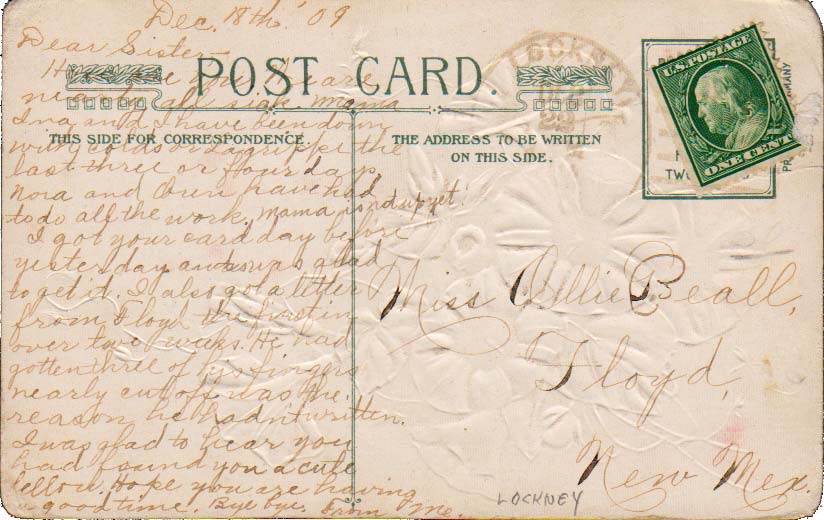 Dec. 18th. '09
Dear Sister—
POST CARD.
THIS SIDE FOR CORRESPONDENCE.
THE ADDRESS TO BE WRITTEN
ON THIS SIDE.
are
nearly all sick. Mama
Ina and I have been down
with colds or Lagrippe the
last three or four days,
Nora and Owen have had
to do all the work. Mama isn't up yet.
I got your card day before
yesterday and was glad
to get it. I also got a letter
from Floyd the first in
over two weeks. He had
gotten three of his fingers
nearly cut off was the
reason he hadn't written.
I was glad to hear you
had found you a cute
fellow. Hope you are having
a good time. Bye bye. From Me.
LOCKNEY
U.S. POSTAGE
ONE CENT
TWO
Miss Ollie Beall,
Floyd,
New Mex.
LOCKNEY